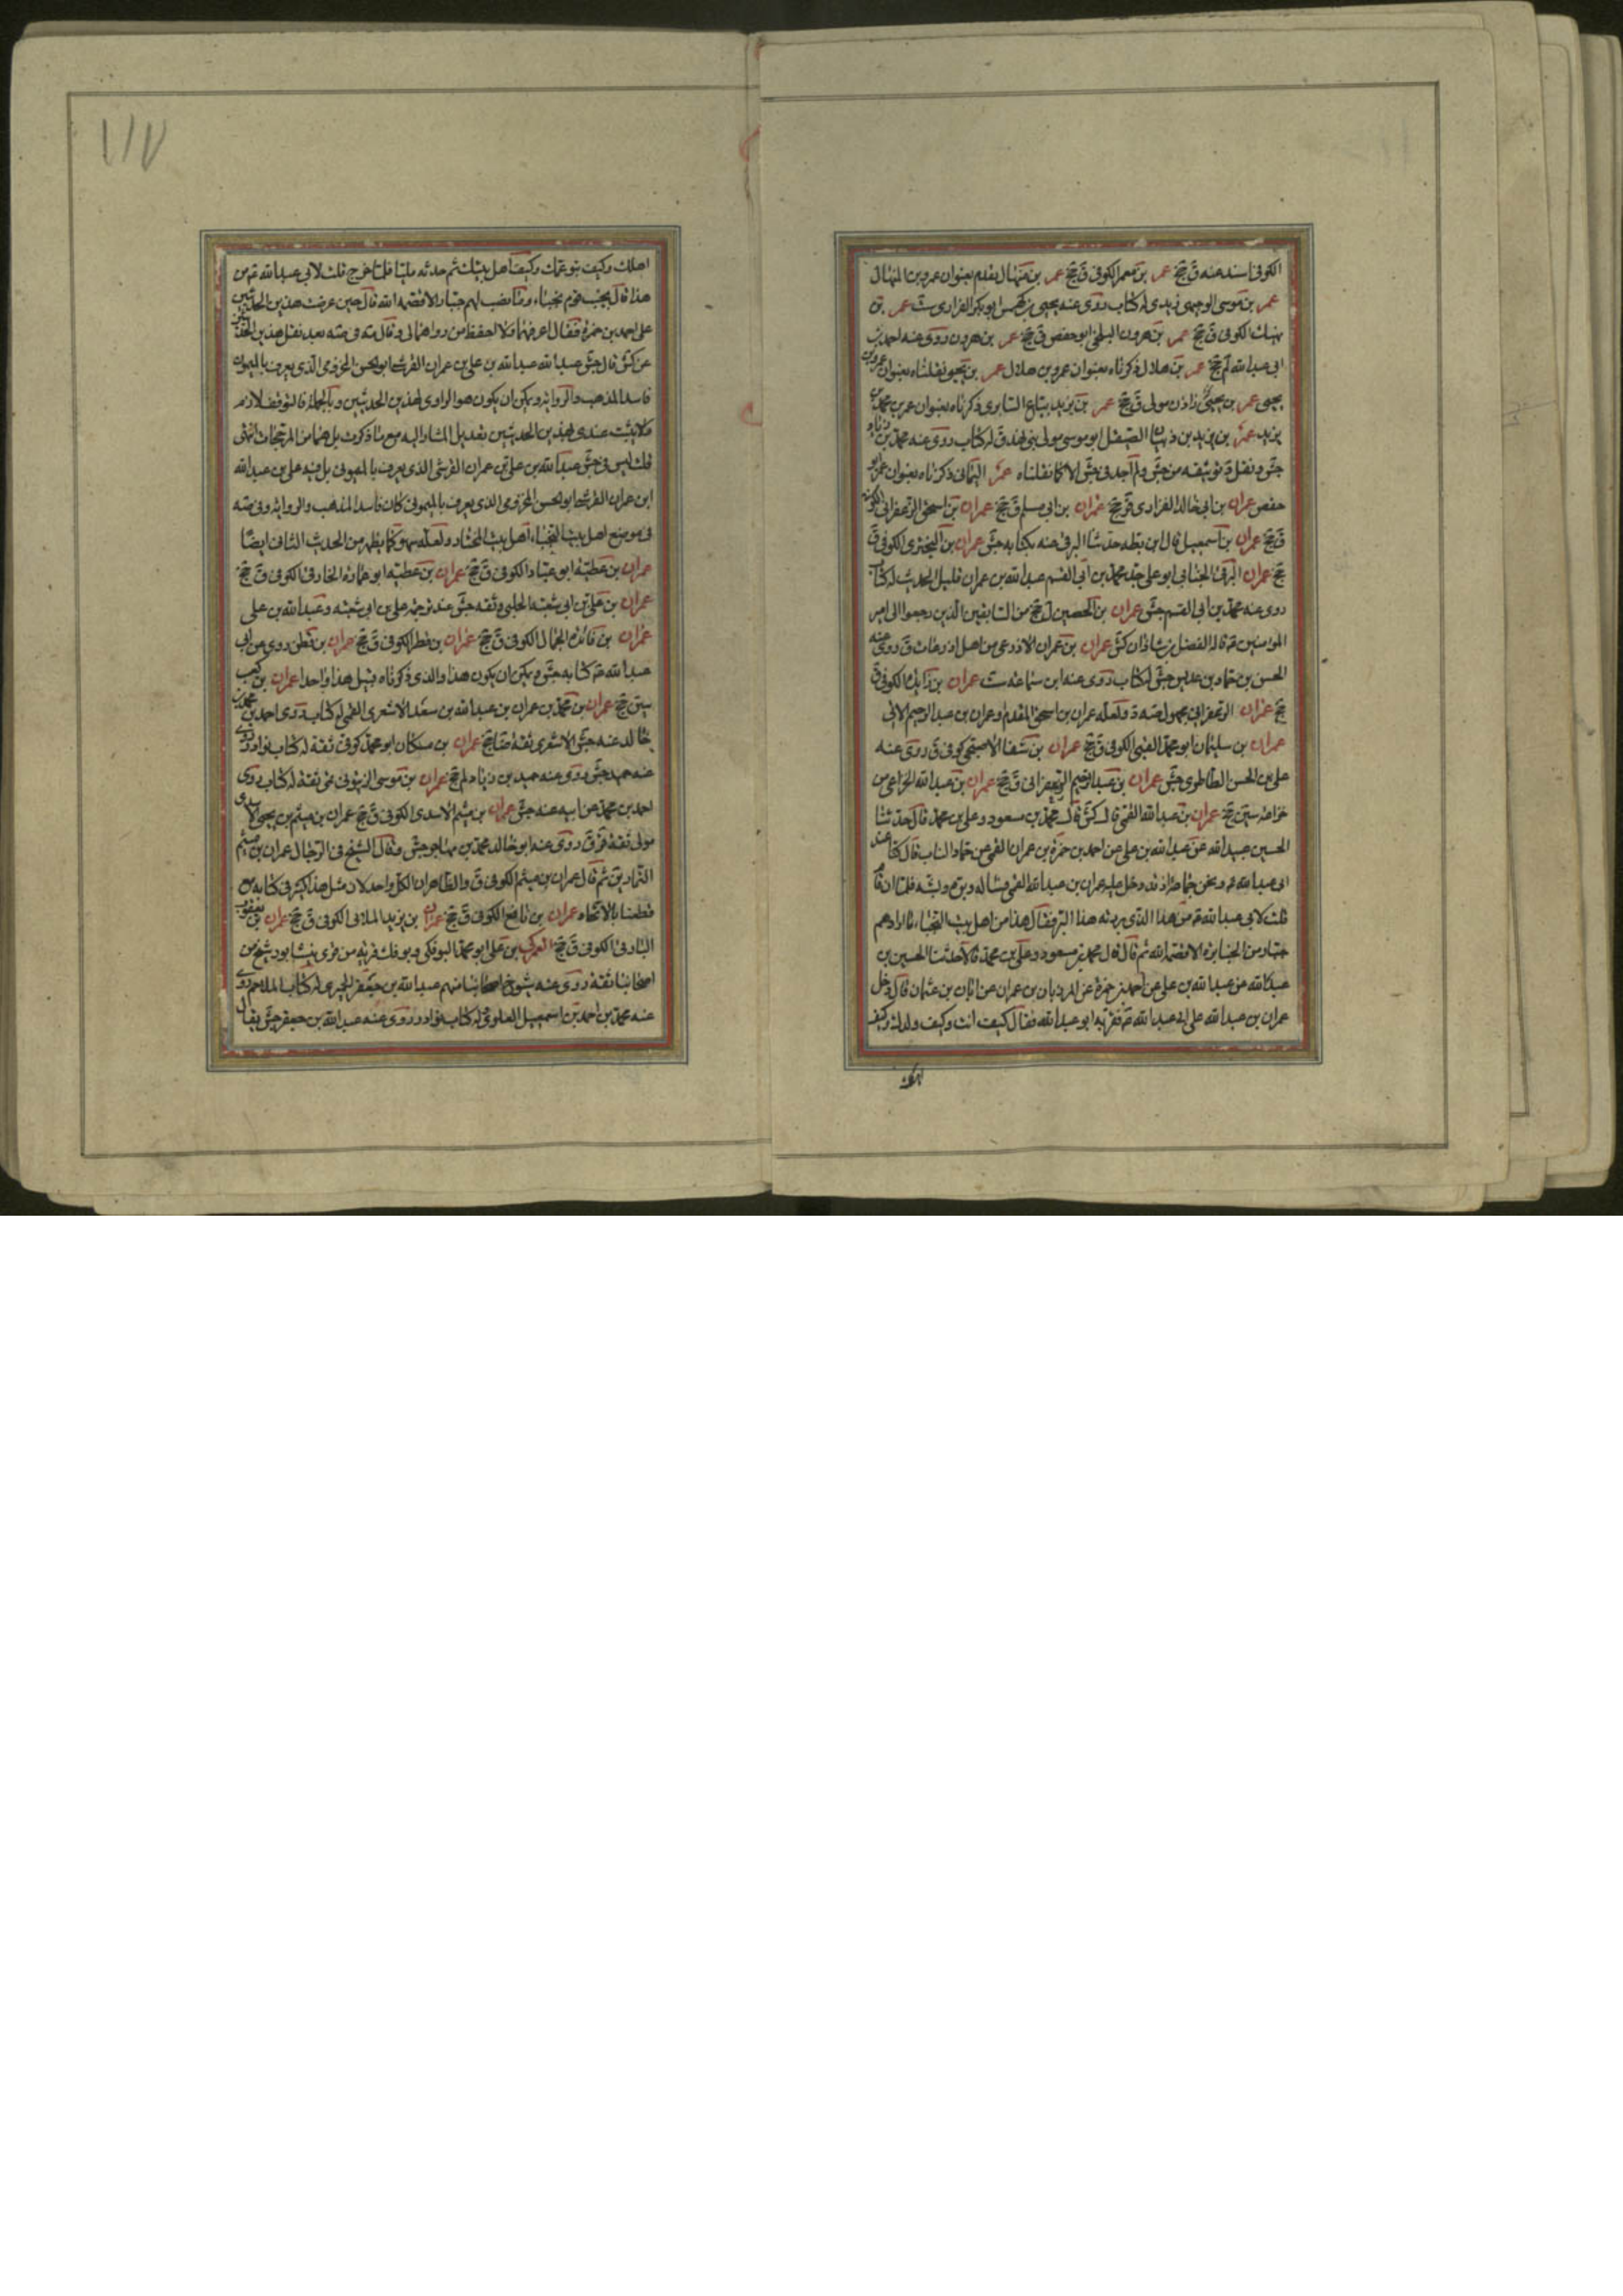 الكوفى اسند عنه ق جخ عمر بن معمر الكوفى ق جخ عمر بن منهال يقدم بعنوان عمرو بن المنهال
عمر بن موسى الوجيهى زيدى له كتاب روى عنه يحيى بن كهمس ابو بكر الفزارى ست عمر بن
نهيك الكوفى ق جخ عمر بن هرون البلخى ابو حفص ق جخ عمر بن هرون روى عنه احمد بن
ابى عبد الله لم جخ عمر بن هلال ذكرناه بعنوان عمرو بن هلال عمر بن يحيى نقلناه بعنوان عمرو بن
يحيى عمر بن يحيى زاذن مولى ق جخ عمر بن يزيد بياع السابرى ذكرناه بعنوان عمر بن محمد بن
يزيد عمر بن يزيد بن ذبيان الصيقل ابو موسى مولى بنى نهد ق له كتاب روى عنه محمد بن زياد
جش و نقل د توثيقه من جش ولم اجد فى جش الا كما نقلناه عمر اليمانى ذكرناه بعنوان عمر ابو
حفص عمران بن ابى خالد الفزارى ق جخ عمران بن ابى مسلم ق جخ عمران بن اسحق الزعفرانى الكوفى
ق جخ عمران بن اسمعيل قال ابن بطه حدثنا البرقى عنه بكتابه جش عمران بن البخترى الكوفى ق
جخ عمران البرقى الجنابى ابو على جد محمد بن ابى القسم عبد الله بن عمران قليل الحديث له كتاب
روى عنه محمد بن ابى القسم جش عمران بن الحصين ل جخ من السابقين الذين رجعوا الى امير
المؤمنين ع قاله الفضل بن شاذان كش عمران بن حمران الاذرعى من اهل اذرعات ق روى عنه
الحسن بن حماد بن عديس جش له كتاب روى عنه ابن سماعه ست عمران بن زايدة الكوفى ق
جخ عمران الزعفرانى مجهول صه د ولعله عمران بن اسحق المقدم او عمران بن عبد الرحيم الاتى
عمران بن سليمان ابو محمد القبى الكوفى ق جخ عمران بن شفا الاصبحى كوفى ق روى عنه
على بن الحسن الطاطرى جش عمران بن عبد الرحيم الزعفرانى ق جخ عمران بن عبد الله الخزاعى من
خزاعه سين جخ عمران بن عبد الله القمى قال كش قال محمد بن مسعود وعلى بن محمد قال حدثنا
الحسين عبيد الله عن عبد الله بن على عن احمد بن حمزة بن عمران القمى عن حماد الناب قال كنا عند
ابى عبد الله ع و نحن جماعة اذ دخل عليه عمران بن عبد الله القمى فسأله و بره و بشه فلما ان قام
قلت لابى عبد الله ع من هذا الذى بررته هذا البر فقال هذا من اهل بيت النجباء ما ارادهم
جبار من الجبابرة الا قصمه الله ثم قال قال محمد بن مسعود وعلى بن محمد قالا حدثنا الحسين بن
عبد الله عن عبد الله بن على عن احمد بن حمزة عن المرزبان بن عمران عن ابان بن عثمان قال دخل
عمران بن عبد الله على ابى عبد الله ع فقربه ابو عبد الله فقال كيف انت وكيف ولدك وكيف
اهلك
١١٧
اهلك وكيف بنو عمك وكيف اهل بيتك ثم حدثه مليا فلما خرج قلت لابى عبد الله ع من
هذا قال نجيب قوم نجباء وما نصب لهم جبار الا قصمه الله قال حسين عرضت هذين الحديثين
على احمد بن حمزة فقال اعرفهما ولا احفظ من رواهما لى و قال مه فى صه بعد نقل هذين الحديثين
عن كش قال جش عبد الله عبد الله بن على بن عمران القرشى ابو الحسن المخزومى الذى يعرف بالميمون
فاسد المذهب والرواية ويمكن ان يكون هو الراوى لهذين الحديثين وبالجملة فالتوقف لازم
ولا يثبت عندى لهذين الحديثين تعديل المشار اليه مع ما ذكرت بل هما من المرجحات انتهى
قلت ليس فى جش عبد الله بن على بن عمران القرشى الذى يعرف بالميمونى بل فيه على بن عبد الله
ابن عمران القرشى ابو الحسن المخزومى الذى يعرف بالميمونى كان فاسد المذهب والرواية وفى صه
فى موضع اهل بيت النجباء اهل بيت المختار ولعله سهو كما يظهر من الحديث الثانى ايضا
عمران بن عطية ابو عباد الكوفى ق جخ عمران بن عطية ابو عمارة الخارفى الكوفى ق جخ
عمران بن على بن ابى شعبة الحلبى وثقه جش عند ترجمة على بن ابى شعبه و عبد الله بن على
عمران بن قائدة الجمال الكوفى ق جخ عمران بن فطر الكوفى ق جخ عمران بن قطن روى عن ابى
عبد الله ع كتابه جش ويمكن ان يكون هذا والذى ذكرناه قبيل هذا واحدا عمران بن كعب
سين جخ عمران بن محمد بن عمران بن عبد الله بن سعد الاشعرى القمى له كتاب روى احمد بن محمد بن
خالد عنه جش الاشعرى ثقة ضا جخ عمران بن مسكان ابو محمد كوفى ثقة له كتاب نوادر روى
عنه حميد جش روى عنه حميد بن زياد لم جخ عمران بن موسى الزيتونى قمى ثقة له كتاب روى
احمد بن محمد عن ابيه عنه جش عمران بن ميثم الاسدى الكوفى ق جخ عمران بن ميثم بن يحيى الاسدى
مولى ثقة قر ق روى عنه ابو خالد محمد بن مهاجر جش و قال الشيخ فى الرجال عمران بن ميثم
التمار ين ثم قال عمران بن ميثم الكوفى ق والظاهر ان الكل واحد لان مثل هذا كثير فى كتابه مع
قطعنا بالاتحاد عمران بن نافع الكوفى ق جخ عمران بن يزيد الملائى الكوفى ق جخ عمران بن يعقوب
البارقى الكوفى ق جخ العمركى بن على ابو محمد البوفكى و بوفك قرية من قرى نيشابور شيخ من
اصحابنا ثقة روى عنه شيوخ اصحابنا منهم عبد الله بن جعفر الحميرى له كتاب الملاحم روى
عنه محمد بن احمد بن اسمعيل العلوى له كتاب نوادر روى عنه عبد الله بن جعفر جش يقال